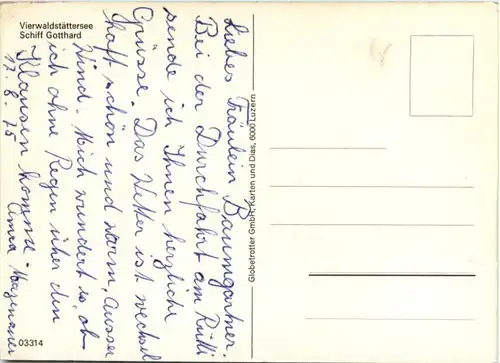 Vierwaldstättersee
Schiff Gotthard
Liebes Fräulein Baumgartner.
Bei der Durchfahrt am Rütli
sende ich Ihnen herzliche
Grüsse. Das Wetter ist wechsel
haft schön und warm, ausser
Wind. Mich wundert es, ob
ich ohne Regen über den
Klausen komme.
17. 8. 75
Globetrotter GmbH, Karten und Dias, 6000 Luzern
03314